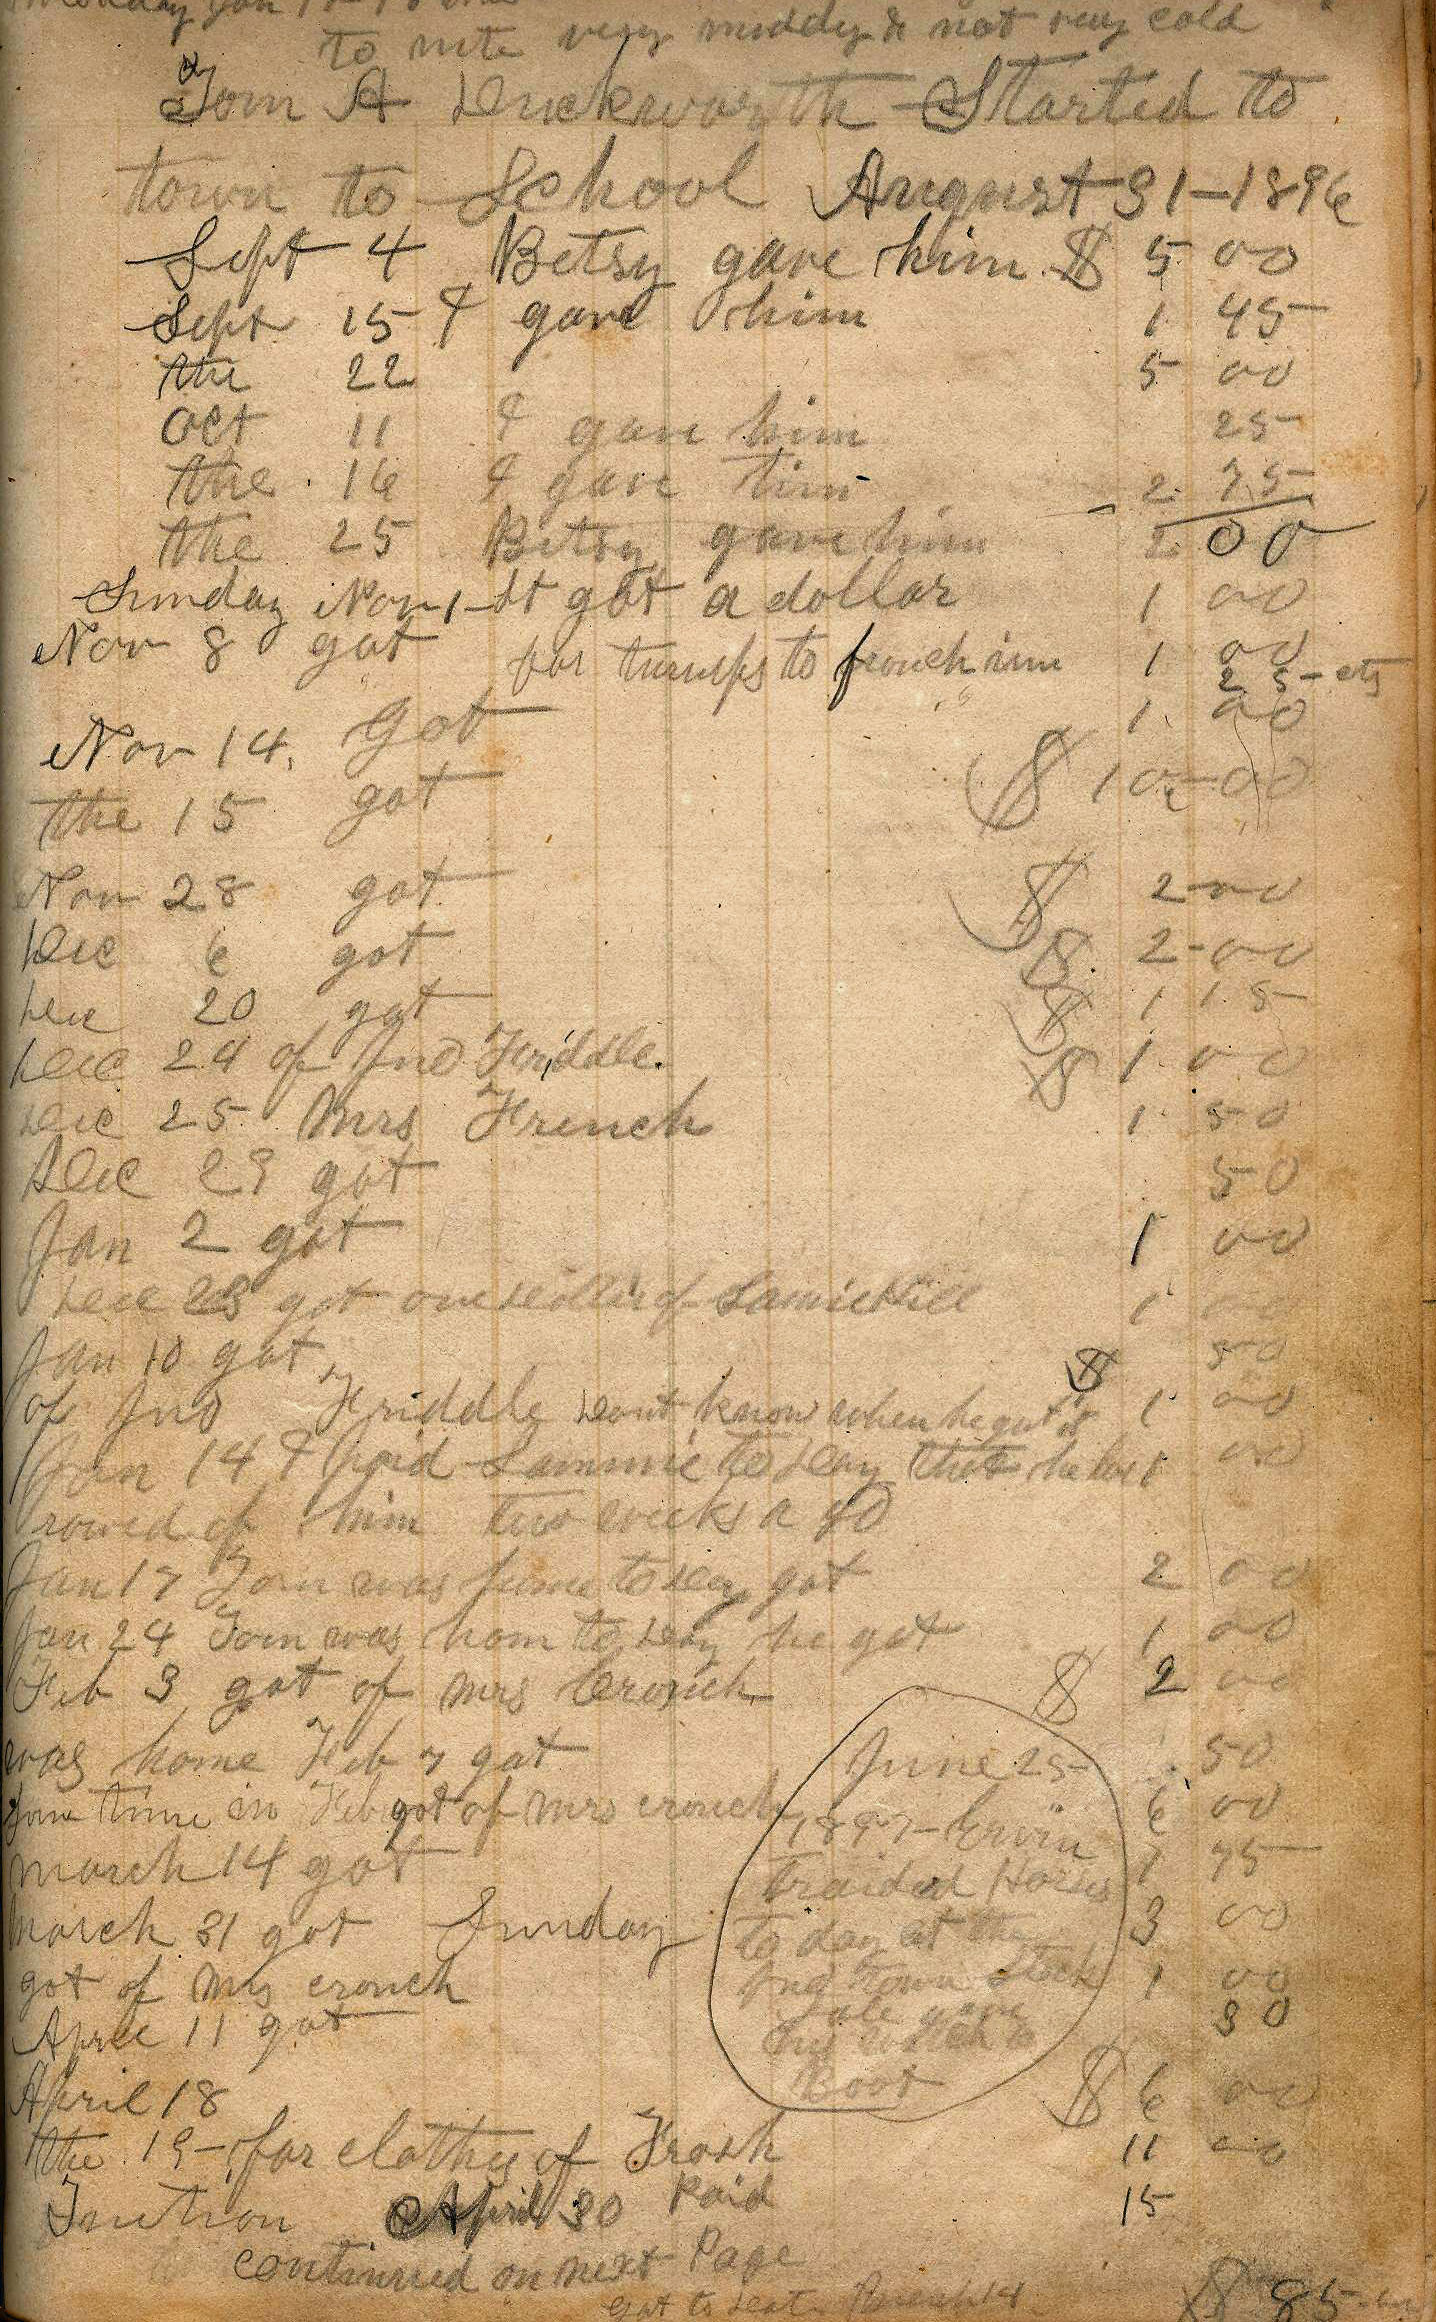 Monday Jan
to nite very muddy & not very cold
Tom A Duckworth Started to
town to School August 31-1896
Sept 4 Betsy gave him $ 5 00
Sept 15 I gave him 1 45
the 22 5 00
Oct 11 I gave him 25
the 16 I gave him 2 75
the 25 Betsy gave him 2 00
Sunday Nov 1-st got a dollar 1 00
Nov 8 got 1 00
for turnips to 25-cts
Nov 14. Got 1 00
the 15 got $ 10-00
Nov 28 got $ 2-00
Dec 6 got $ 2-00
Dec 20 got $ 1 15
Dec 24 of Jno Friddle. $ 1 00
Dec 25 Mrs French 1 50
Dec 29 got 50
Jan 2 got 1 00
Dec 23 got one Dollar of Samie 1 00
Jan 10 got 50
of Jno Friddle Dont know when he got it $ 1 00
Jan 14 I paid Sammie to Day that he bor 1 00
rowed of him two weeks a go
Jan 17 Tom was home to Day got 2 00
Jan 24 Tom was hom to Day he got 1 00
Feb 3 got of Mrs Crouch $ 2 00
was home Feb 7 got 50
Some time in Feb got of Mrs crouch 6 00
March 14 got 75
March 31 got Sunday 3 00
got of Mrs crouch 1 00
April 11 got 30
June 25
1897 Ervin
traided Horses
to day at the
town Stock
Sale gave
his watch to
Boot
April 18 $ 6 00
the 19-for clothes of Frosh 11 00
Tuition April 30 Paid 15
continued on next Page
got to Date March 14 $ 85